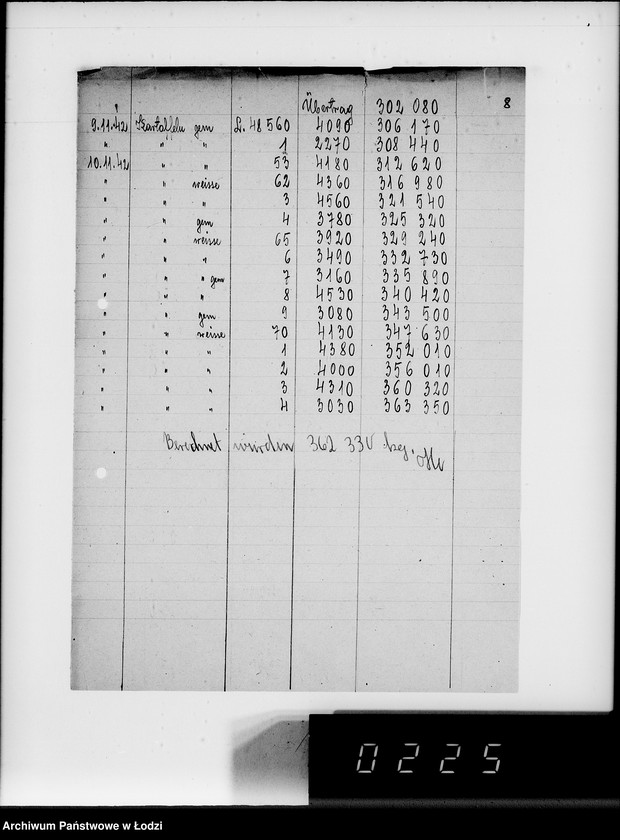 Übertrag 302 080 8
9.11.42 Kartoffeln gem L. 48 560 4090 306 170
" " " 1 2270 308 440
10.11.42 " " 53 4180 312 620
" " weisse 62 4360 316 980
" " " 3 4560 321 540
" " gem 4 3780 325 320
" " weisse 65 3920 329 240
" " " 6 3490 332 730
" " " gem 7 3160 335 890
" " " 8 4530 340 420
" " gem 9 3080 343 500
" " weisse 70 4130 347 630
" " " 1 4380 352 010
" " " 2 4000 356 010
" " " 3 4310 360 320
" " " 4 3030 363 350
Berechnet wurden 362 330 kg.
0225
Archiwum Państwowe w Łodzi